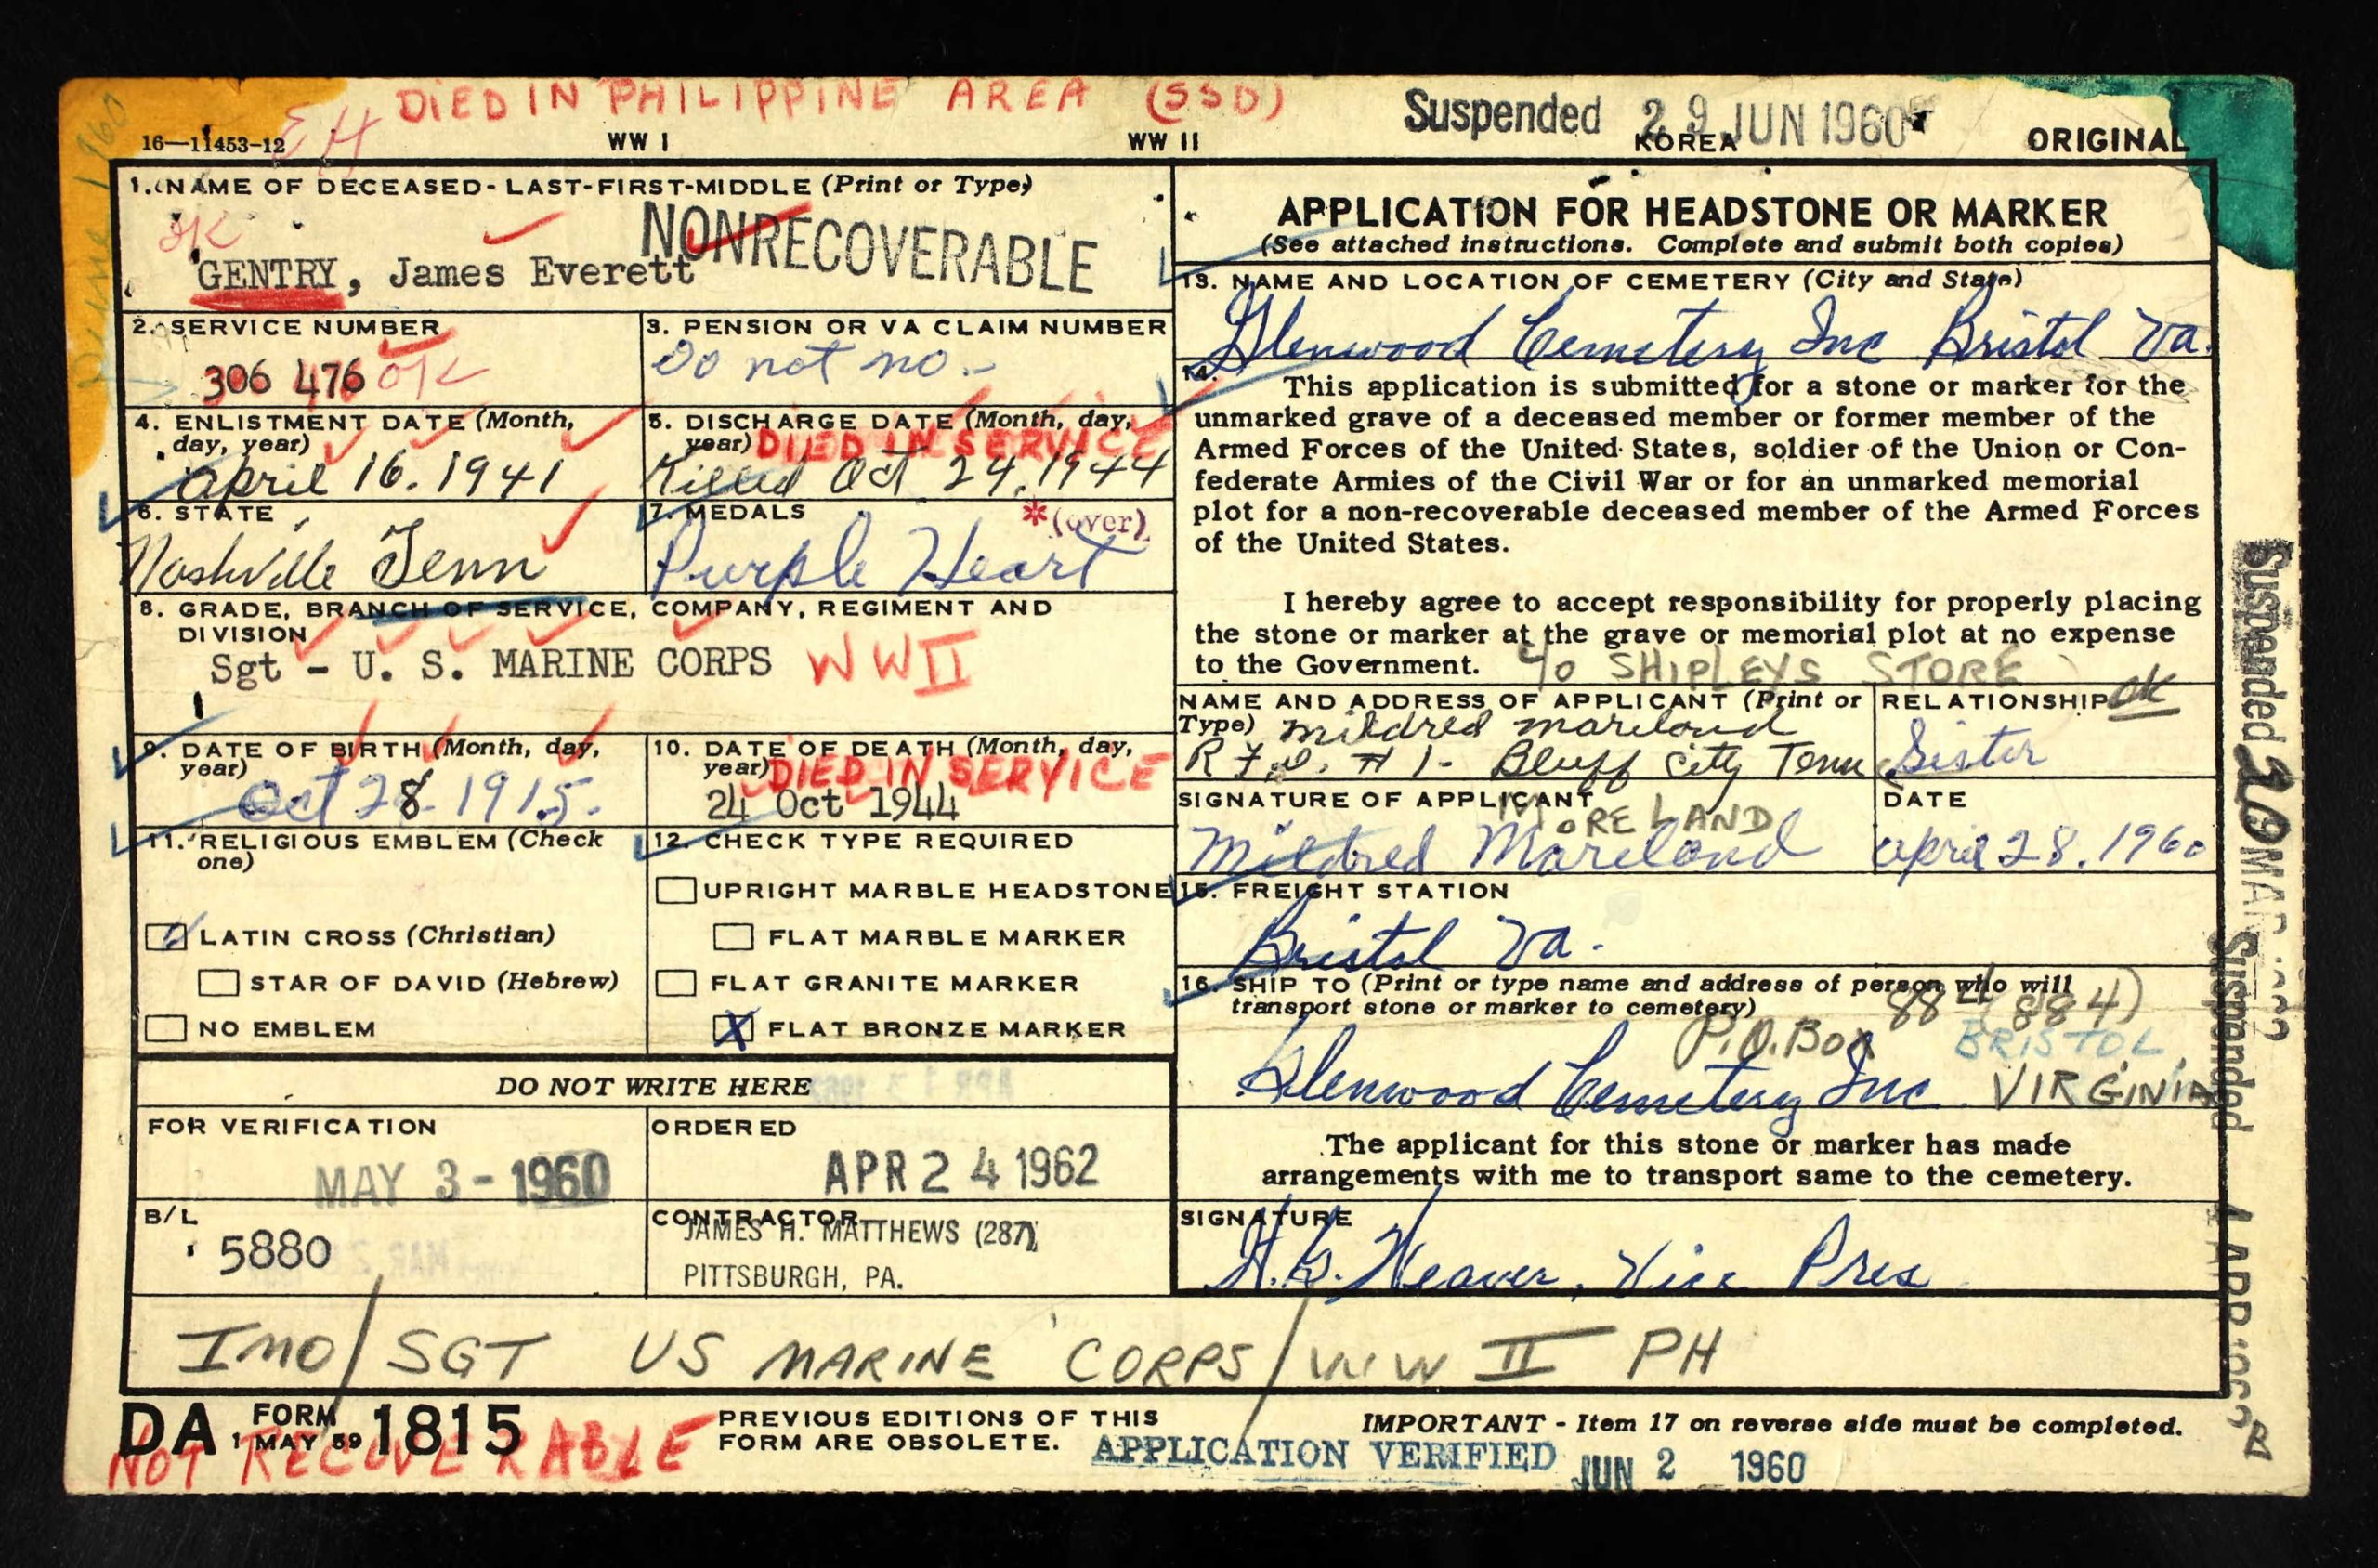 DIED IN PHILIPPINE AREA (SSD)
EH
Suspended 29 JUN 1960
16—11453-12 WW I WW II KOREA ORIGINAL
1. NAME OF DECEASED - LAST-FIRST-MIDDLE (Print or Type)
OK
NONRECOVERABLE
GENTRY, James Everett
2. SERVICE NUMBER
306 476 OK
3. PENSION OR VA CLAIM NUMBER
Do not no.-
4. ENLISTMENT DATE (Month, day, year)
April 16. 1941
5. DISCHARGE DATE (Month, day, year) DIED IN SERVICE
Killed Oct 24, 1944
6. STATE
Nashville Tenn
7. MEDALS *(over)
Purple Heart
8. GRADE, BRANCH OF SERVICE, COMPANY, REGIMENT AND
DIVISION
Sgt - U. S. MARINE CORPS WW II
9. DATE OF BIRTH (Month, day, year)
Oct 28 1915.
10. DATE OF DEATH (Month, day, year) DIED IN SERVICE
24 Oct 1944
11. RELIGIOUS EMBLEM (Check one)
LATIN CROSS (Christian)
STAR OF DAVID (Hebrew)
NO EMBLEM
12. CHECK TYPE REQUIRED
UPRIGHT MARBLE HEADSTONE
FLAT MARBLE MARKER
FLAT GRANITE MARKER
X FLAT BRONZE MARKER
DO NOT WRITE HERE
FOR VERIFICATION
MAY 3 - 1960
ORDERED
APR 24 1962
B/L
5880
CONTRACTOR
JAMES H. MATTHEWS (287)
PITTSBURGH, PA.
APPLICATION FOR HEADSTONE OR MARKER
(See attached instructions. Complete and submit both copies)
13. NAME AND LOCATION OF CEMETERY (City and State)
Glenwood Cemetery Inc Bristol Va.
14.
This application is submitted for a stone or marker for the
unmarked grave of a deceased member or former member of the
Armed Forces of the United States, soldier of the Union or Con-
federate Armies of the Civil War or for an unmarked memorial
plot for a non-recoverable deceased member of the Armed Forces
of the United States.
I hereby agree to accept responsibility for properly placing
the stone or marker at the grave or memorial plot at no expense
to the Government. c/o SHIPLEYS STORE
NAME AND ADDRESS OF APPLICANT (Print or
Type) Mildred Mareland
R F.D. # 1- Bluff City Tenn
RELATIONSHIP OK
Sister
SIGNATURE OF APPLICANT
MORELAND
Mildred Mareland
DATE
April 28. 1960
15. FREIGHT STATION
Bristol Va.
16. SHIP TO (Print or type name and address of person who will
transport stone or marker to cemetery)
P.O. Box 884 (884)
BRISTOL
Glenwood Cemetery Inc. VIRGINIA
The applicant for this stone or marker has made
arrangements with me to transport same to the cemetery.
SIGNATURE
Weaver, Vice Pres
IMO/SGT US MARINE CORPS/WW II PH
DA FORM 1 MAY 59 1815
PREVIOUS EDITIONS OF THIS
FORM ARE OBSOLETE.
IMPORTANT - Item 17 on reverse side must be completed.
NOT RECOVERABLE
APPLICATION VERIFIED JUN 2 1960
Suspended
Suspended